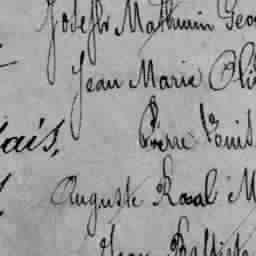 Joseph Mathurin Geo
Jean Marie Oli
lais, Pierre Louis
Auguste Raoal M
Jean Baptiste